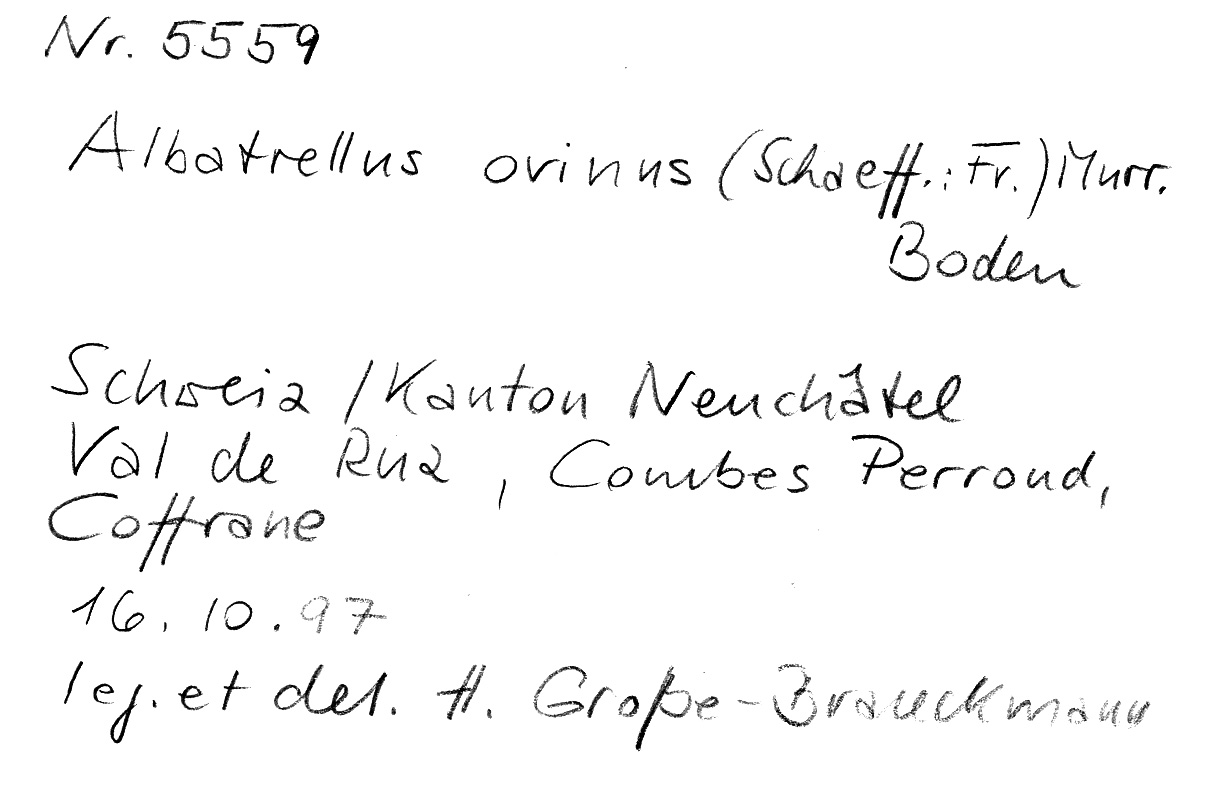 Nr. 5559
Albatrellus ovinus (Schaeff.: Fr.) Murr.
Boden
Schweiz / Kanton Neuchâtel
Val de Ruz, Combes Perroud,
Coffrane
16.10.97
leg. et det. H. Große-Brauckmann